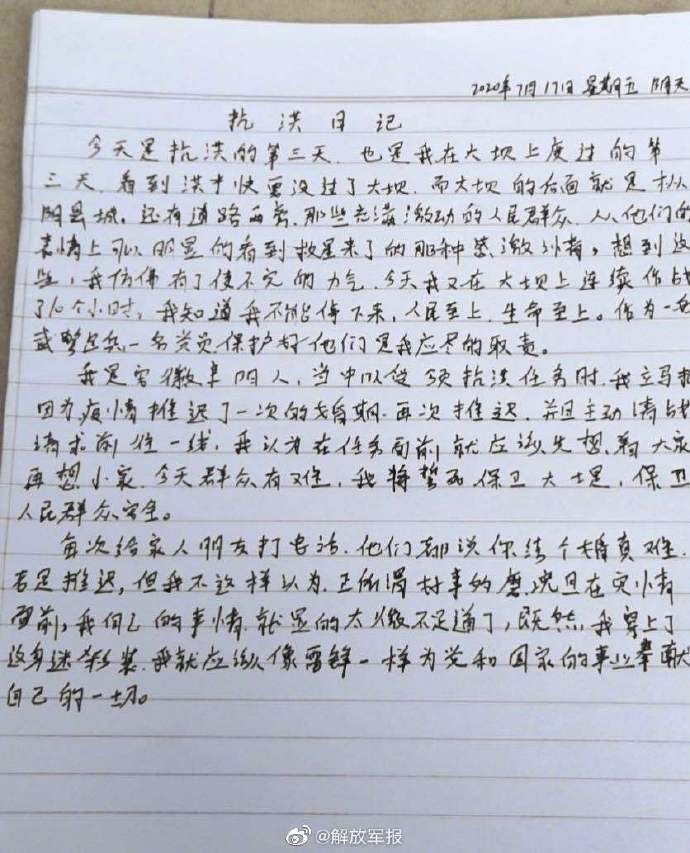 2020年7月17日 星期五 阴天
抗洪日记
今天是抗洪的第三天、也是我在大坝上度过的第
三天、看到洪水快要没过了大坝、而大坝的后面就是枞
阳县城。还有道路两旁、那些充满激动的人民群众、从他们的
表情上可以明显的看到救星来了的那种感激之情，想到这
些，我仿佛有了使不完的力气、今天我又在大坝上连续作战
了16个小时，我知道我不能停下来，人民至上、生命至上。作为一名
武警官兵、一名党员、保护好他们是我应尽的职责。
我是安徽阜阳人，当中队受领抗洪任务时、我立马把
因为疫情推迟了一次的婚期、再次推迟、并且主动请战
请求前往一线，我认为在任务面前就应该先想着大家
再想小家、今天群众有难，我将誓死保卫大堤，保卫
人民群众安全。
每次给家人朋友打电话、他们都说你结个婚真难、
老是推迟，但我不这样认为、正所谓好事多磨、况且在灾情
面前，我自己的事情、就显的太微不足道了，既然我穿上了
这身迷彩装、我就应该像雷锋一样为党和国家的事业奉献
自己的一切。
@解放军报